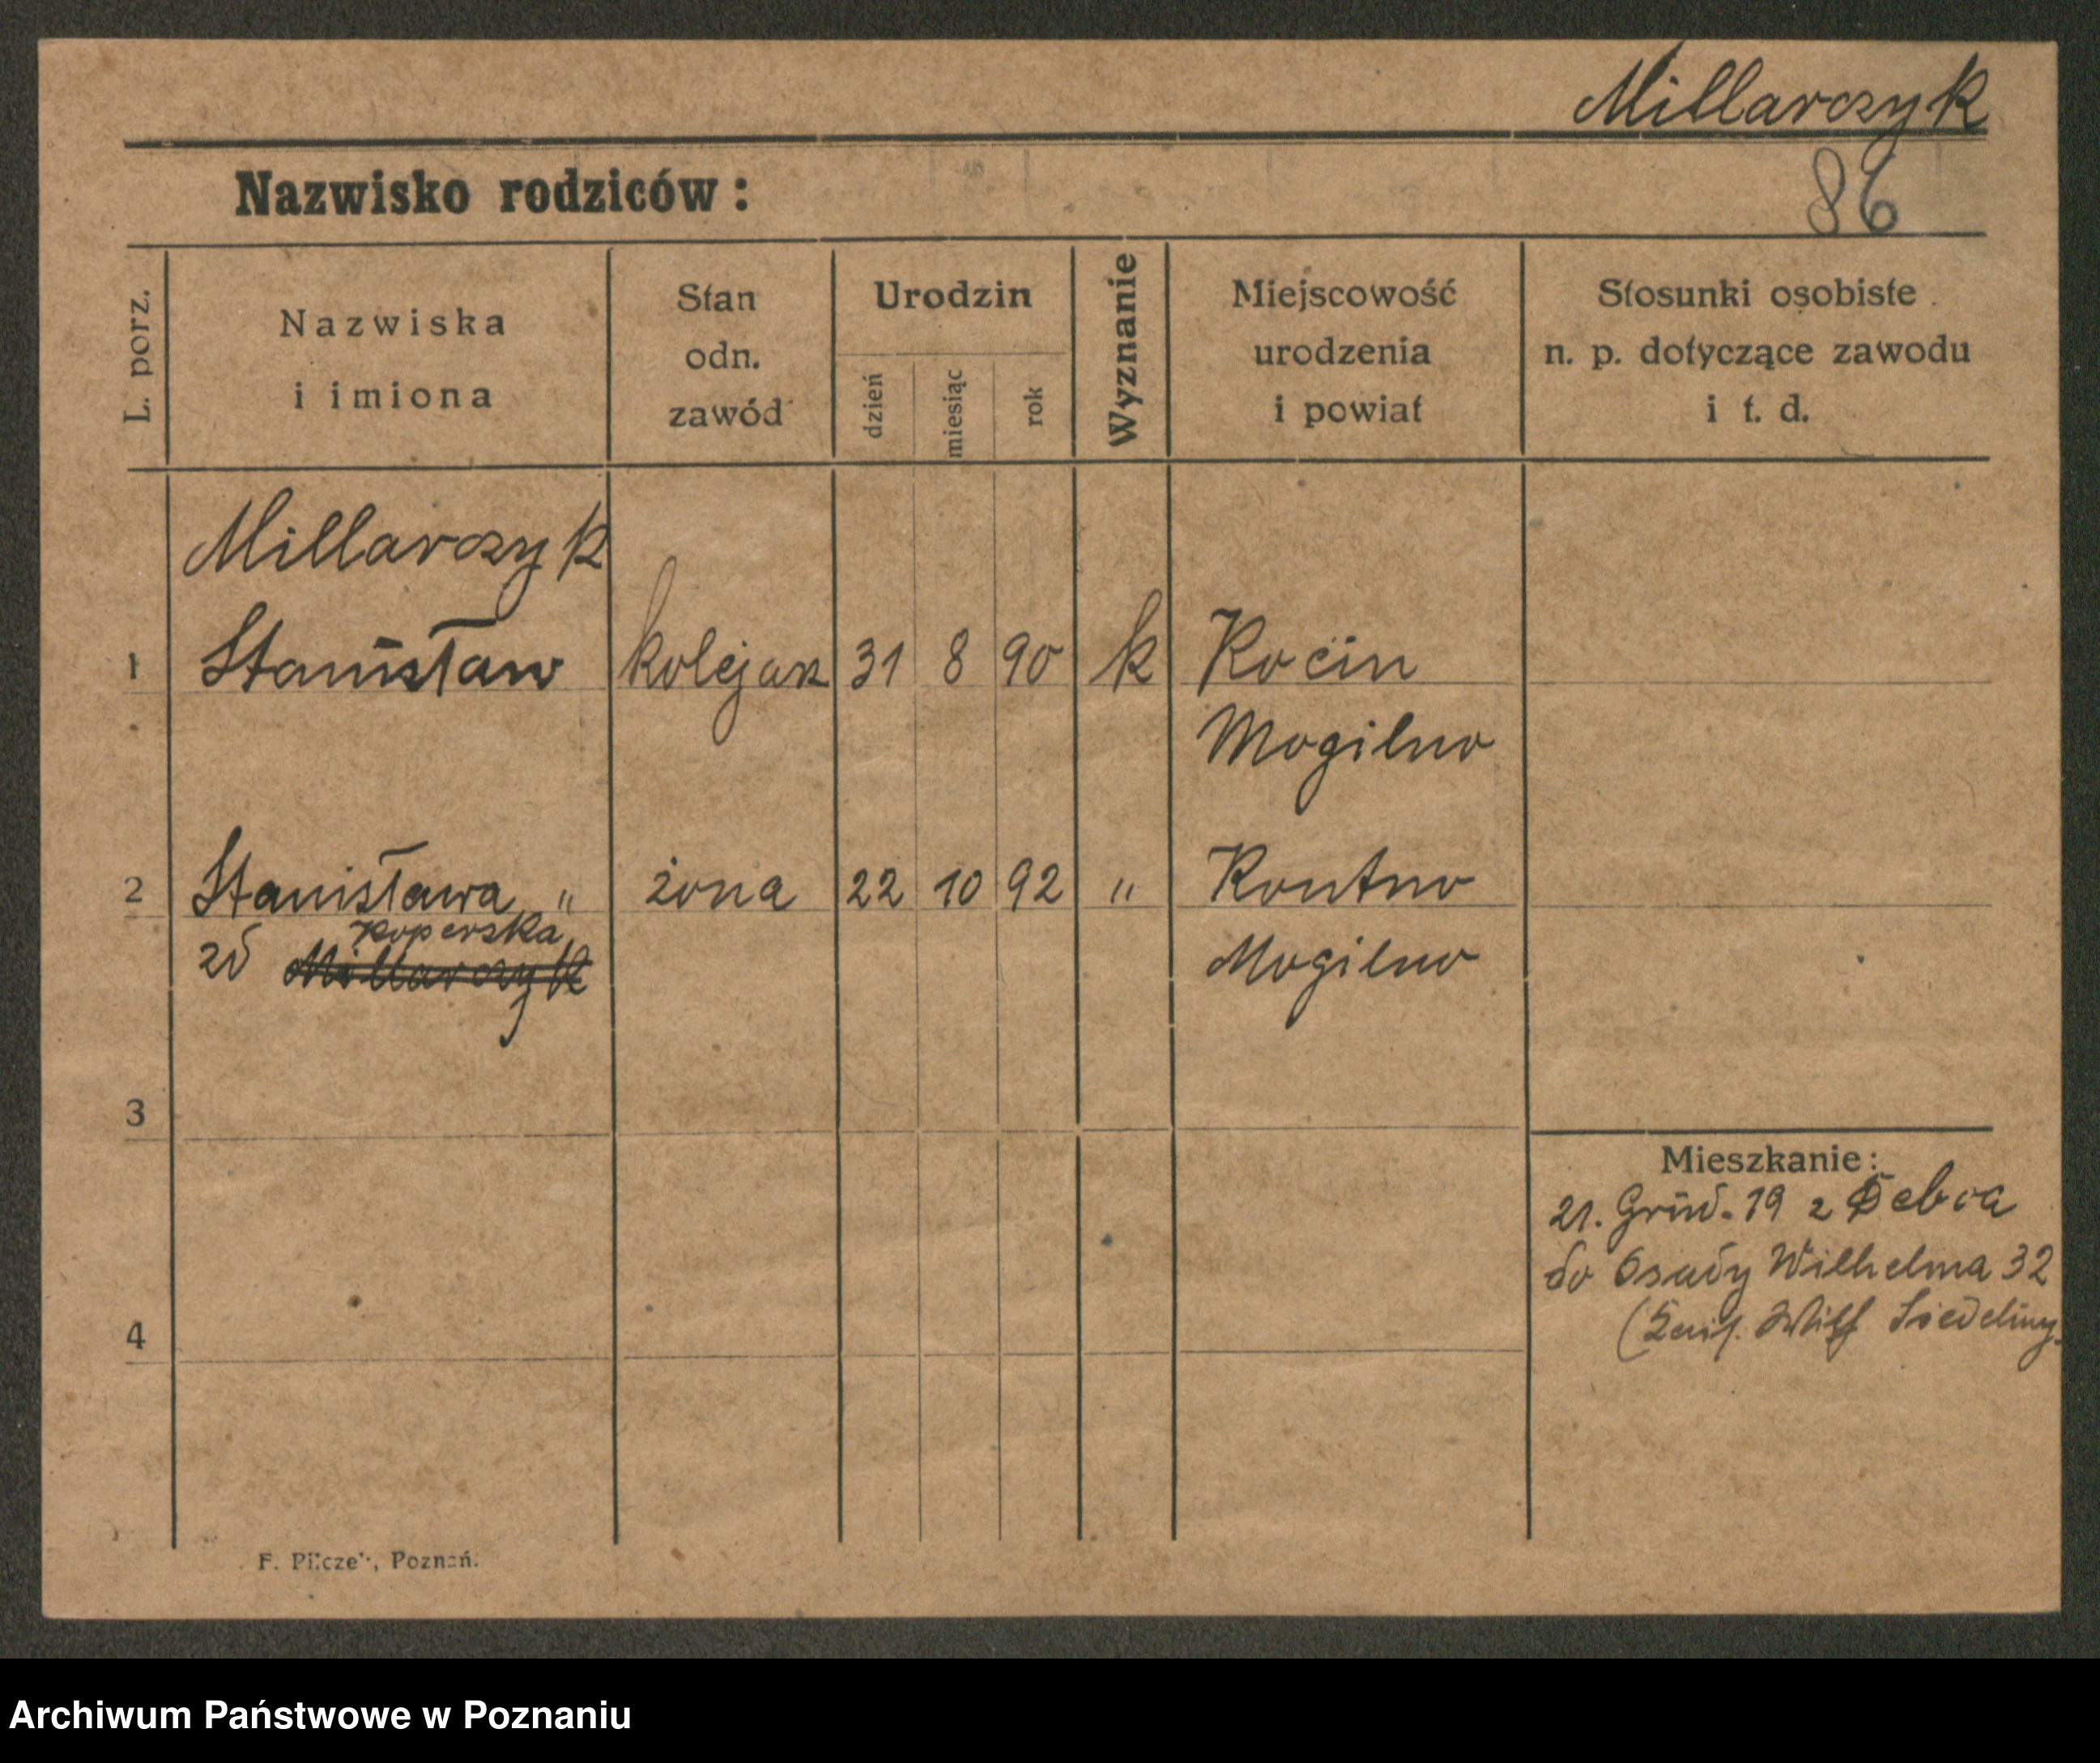 Millarczyk
Nazwisko rodziców:
86
L. porz.
Nazwiska
i imiona
Stan
odn.
zawód
Urodzin
dzień
miesiąc
rok
Wyznanie
Miejscowość
urodzenia
i powiat
Stosunki osobiste
n. p. dotyczące zawodu
i t. d.
Millarczyk
1 Stanisław kolejarz 31 8 90 k Kocin
Mogilno
2 Stanisława " żona 22 10 92 " Koutno
Mogilno
Koperska
zd Millarczyk
3
Mieszkanie:
21. Grud. 19 z Debca
do Osady Wilhelma 32
4
F. Pilczek, Poznań.
Archiwum Państwowe w Poznaniu